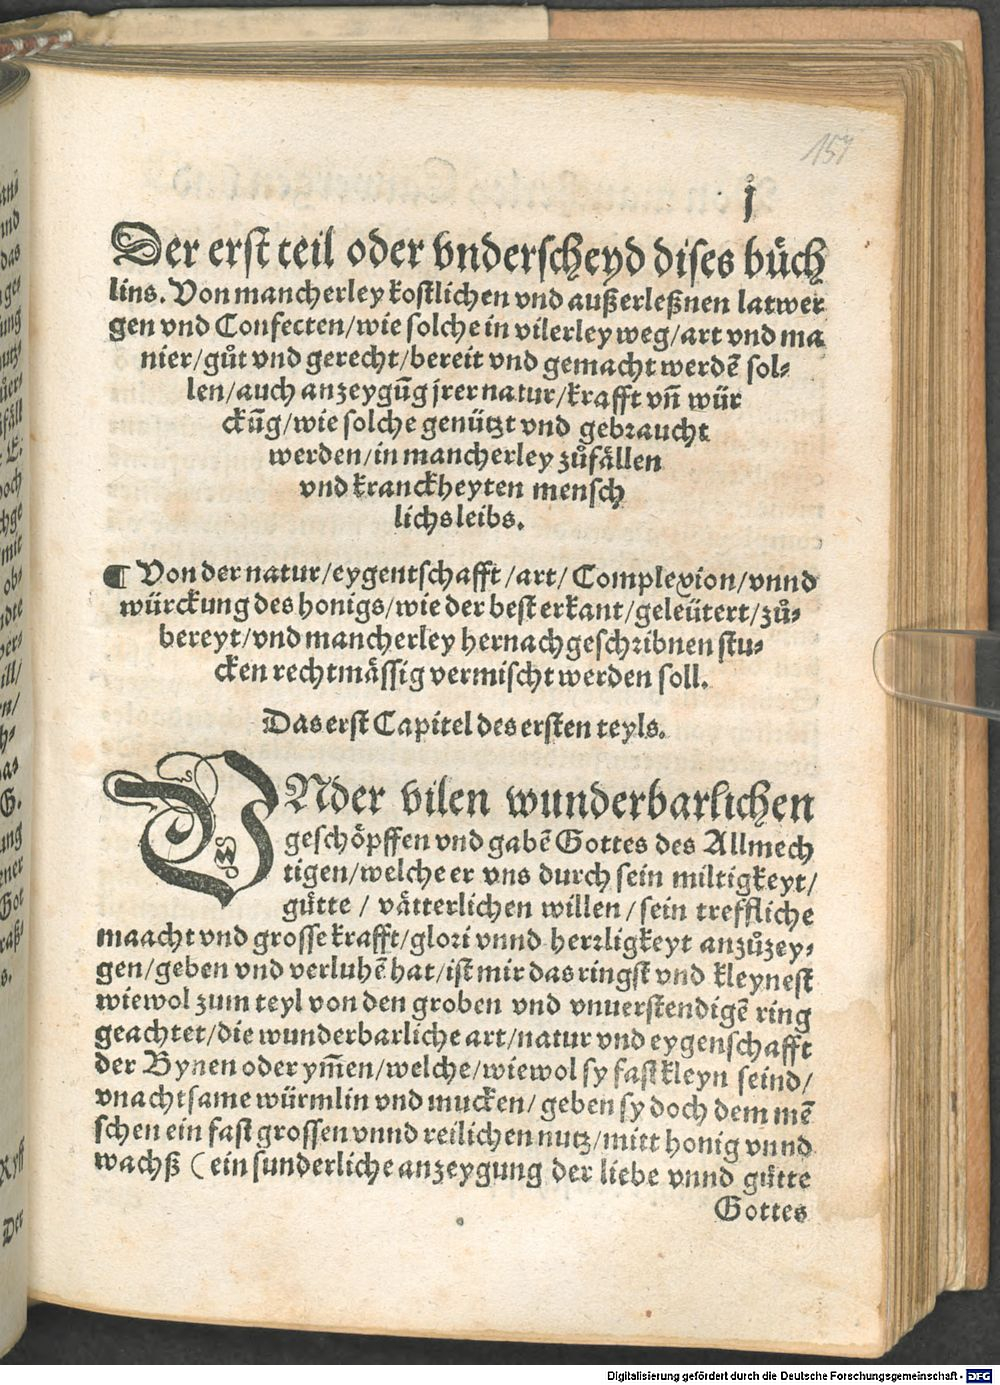 157
j
Der erst teil oder vnderscheyd dises bůch
lins. Von mancherley kostlichen vnd außerleßnen latwer
gen vnd Confecten/wie solche in vilerley weg/art vnd ma
nier/gůt vnd gerecht/bereit vnd gemacht werdē sol⸗
len/auch anzeygūg jrer natur/krafft vn̄ wür
ckūg/wie solche genützt vnd gebraucht
werden/in mancherley zůfällen
vnd kranckheyten mensch
lichs leibs.
¶ Von der natur/eygentschafft/art/Complexion/vnnd
würckung des honigs/wie der best erkant/geleütert/zů⸗
bereyt/vnd mancherley hernach geschribnen stu⸗
cken rechtmässig vermischt werden soll.
Das erst Capitel des ersten teyls.
VNder vilen wunderbarlichen
geschöpffen vnd gabē Gottes des Allmech
tigen/welche er vns durch sein miltigkeyt/
gůtte/ vätterlichen willen/sein treffliche
maacht vnd grosse krafft/glori vnnd herrligkeyt anzůzey⸗
gen/geben vnd verluhē hat/ist mir das ringst vnd kleynest
wiewol zum teyl von den groben vnd vnuerstendigē ring
geachtet/die wunderbarliche art/natur vnd eygenschafft
der Bynen oder ym̄en/welche/wiewol sy fast kleyn seind/
vnachtsame würmlin vnd mucken/geben sy doch dem mē
schen ein fast grossen vnnd reilichen nutz/mitt honig vnnd
wachß (ein sunderliche anzeygung der liebe vnnd gůtte
Gottes
Digitalisierung gefördert durch die Deutsche Forschungsgemeinschaft - DFG